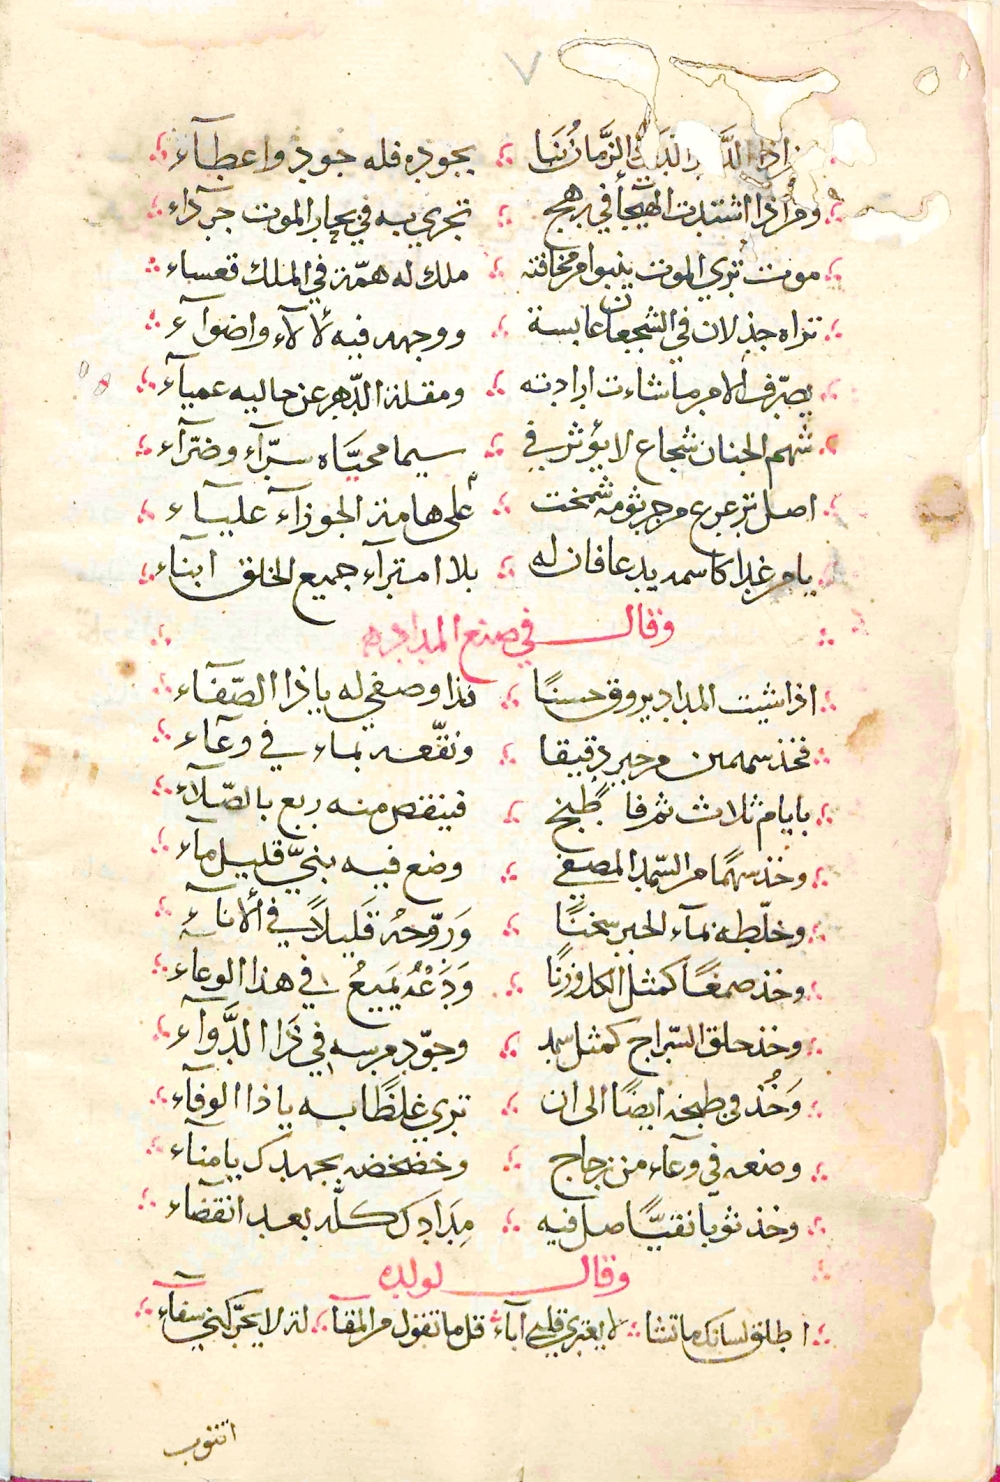 ٧
الزمان بجوده فله جود واعطآء
ومن اذا اشتدت الهيجا في رهج تجري به في بحار الموت جردآء
موت تري الموت ينبوا من مخافته ملك له همّة في الملك قعساء
تراه جذلان في الشجعان عابسة ووجهه فيه لألآء واضوآء
يصرّف الامر ما شاءت ارادته ومقلة الدّهر عن حاليه عميآء
شهم الجنان شجاع لا يؤثر في سيما محيّاه سرّآء وضرّآء
اصل ترعرع من جرثومة شمخت على هامة الجوزآء عليآء
يا من غدا كاسمه يدعا فان له بلا امترآء جميع الخلق ابناء
وقال في صنع المداد
اذا شيت المداد يروق حسنًا فذا وصفي له يا ذا الصّفآء
فخذ سهمين من حبر دقيقا ونقّعه بماء في وعآء
بايام ثلاث ثم فاطبخ فينقص منه ربع بالصّلآء
وخذ سهمًا من السّمد المصفي وضع فيه بنيّ قليل مآء
وخلّطه بمآء الحبر سخنًا وَرَوّحهُ قَليلاً في الأنآء
وخذ صمغًا كمثل الكل وزنًا وَدَعْهُ يَميعُ في هذا الوعاء
وخذ حلق السّراج كمثل سمد وجوّد مرسه في ذَا الدَّوآء
وَخُذ في طبخه ايضًا الى ان تري غلظًا به يا ذا الوفآء
وضعه في وعآء من زجاج وخضخضه بجهدك يا منآء
وخذ ثوبا نقيًّا صل فيه مِدَادك كلّه بعد انقضآء
وقال لولده
اطلق لسانك ما تشا لا يعتري قلبي آبآء قل ما تقول من المقآ لة لا يحرّكني سفآء
اثنوب